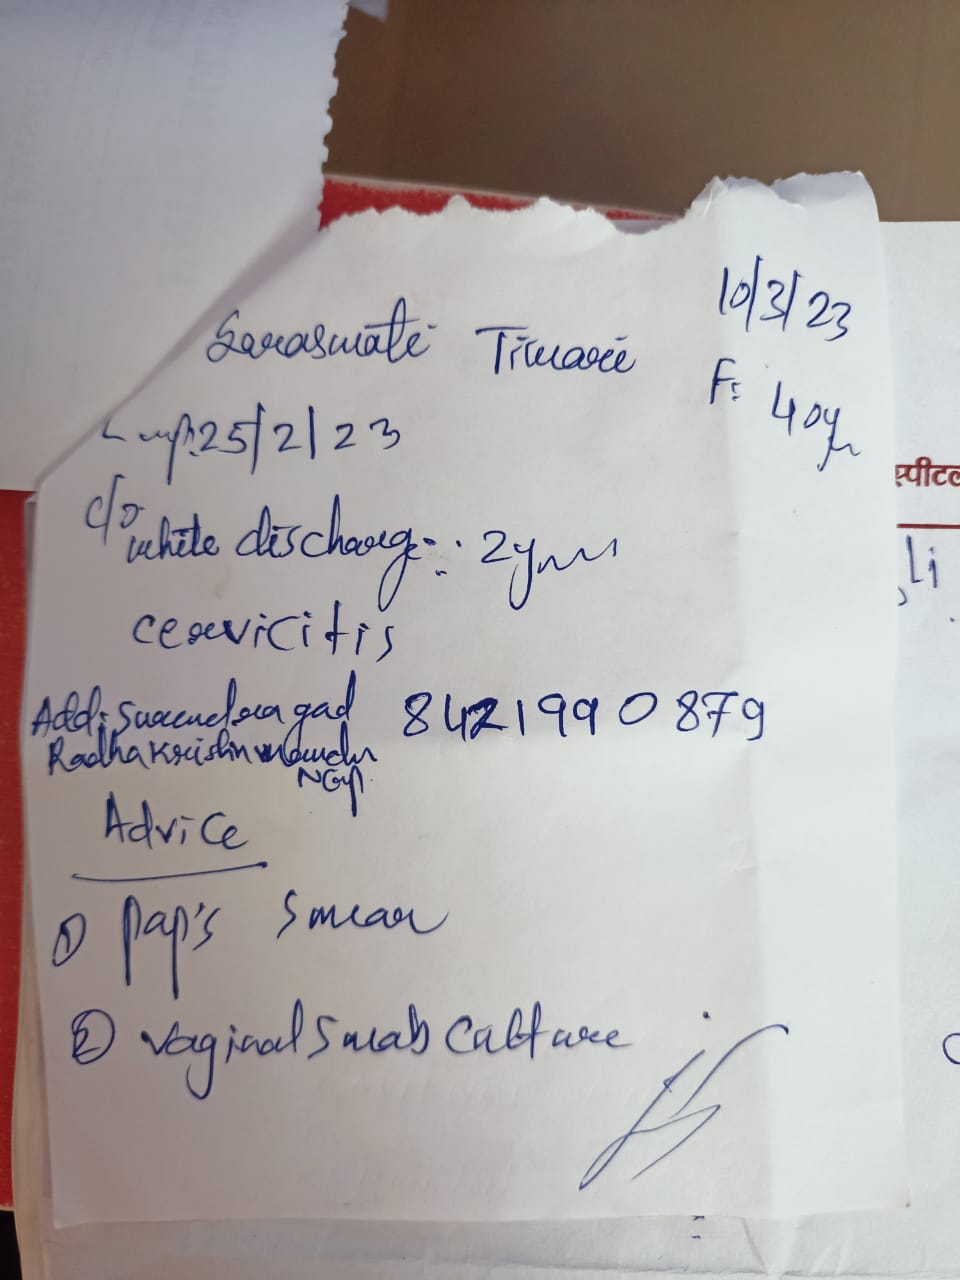 10/3/23
Saraswati Tiwari
F: 40yr
Lmp: 25/2/23
c/o
white discharge: 2yrs
cervicitis
Add: Surendragad 8421990879
Radha Krishn
NGp.
Advice
① Pap's Smear
② Vaginal Swab Culture
स्पीटल
li